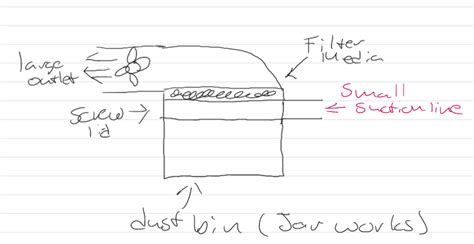 large
outlet
Filter
Media
Small
Suction line
Screw
lid
dust bin (Jar works)